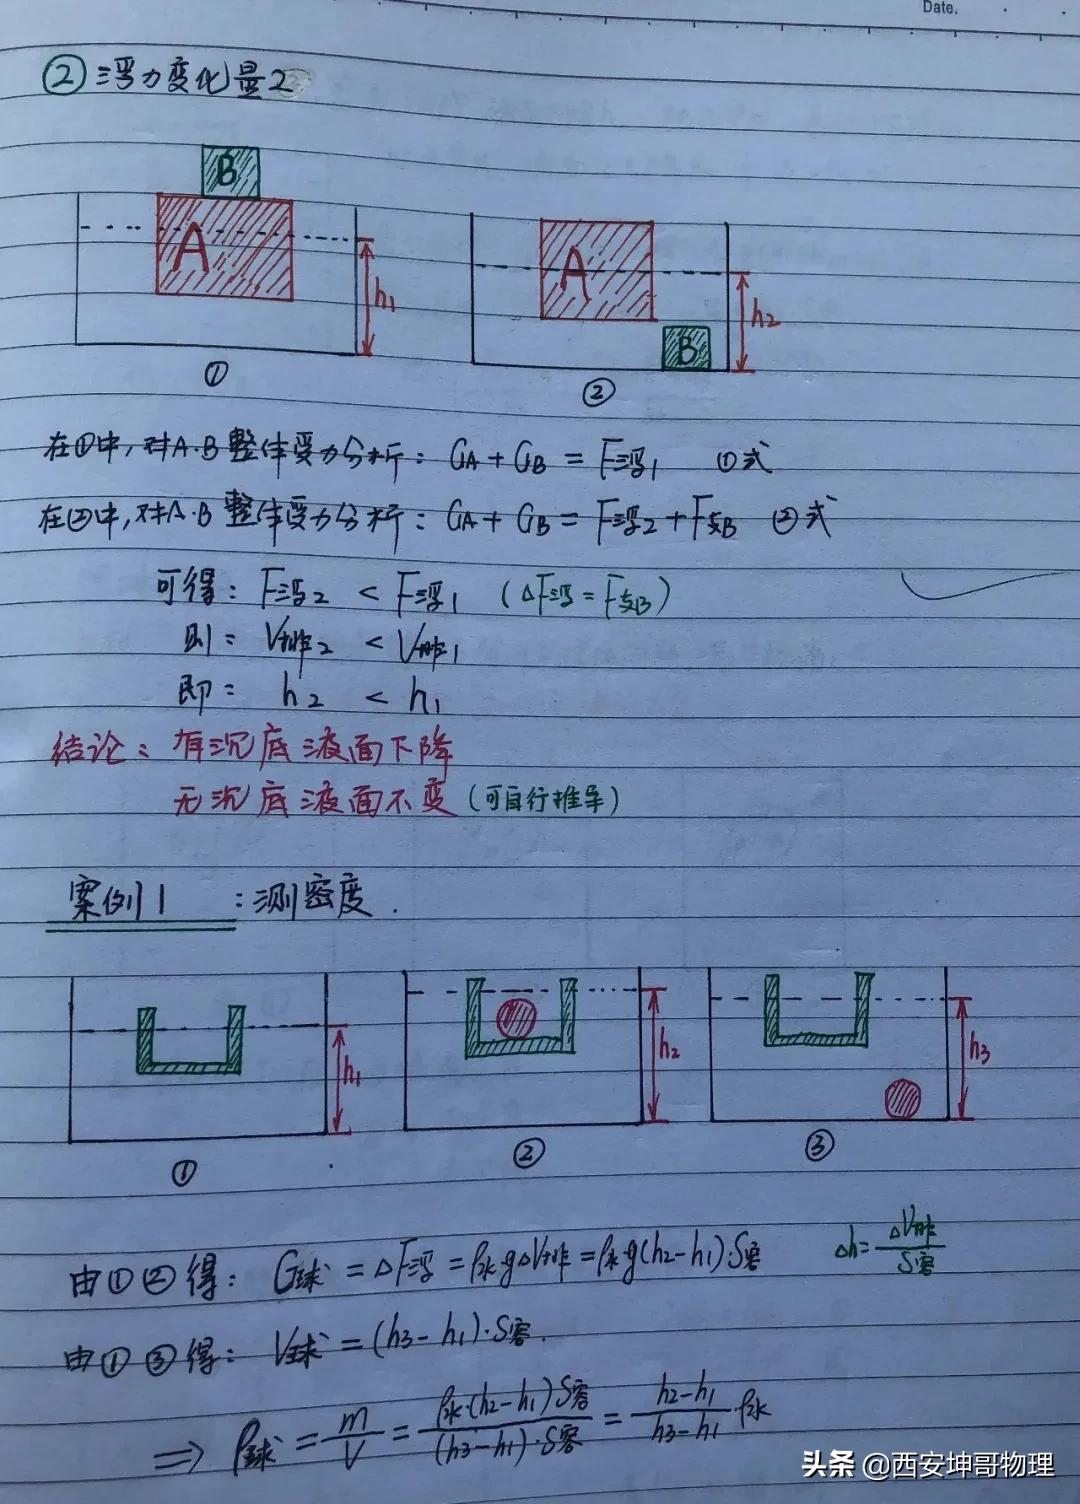 Date.
② 浮力变化量2
B
A
h₁
①
A
B
h₂
②
在①中,对A.B整体受力分析: GA + GB = F浮1 ①式
在②中,对A.B整体受力分析: GA + GB = F浮2 + F支B ②式
可得: F浮2 < F浮1 (ΔF浮 = F支B)
则: V排2 < V排1
即: h₂ < h₁
结论: 有沉底液面下降
无沉底液面不变(可自行推导)
案例1 : 测密度.
h₁
①
h₂
②
h₃
③
由①②得: G球 = ΔF浮 = ρ水gΔV排 = ρ水g(h₂-h₁)·S容
Δh = ΔV排/S容
由①③得: V球 = (h₃-h₁)·S容.
⇒ ρ球 = m/V = ρ水·(h₂-h₁)S容/(h₃-h₁)·S容 = h₂-h₁/h₃-h₁·ρ水
头条 @西安坤哥物理